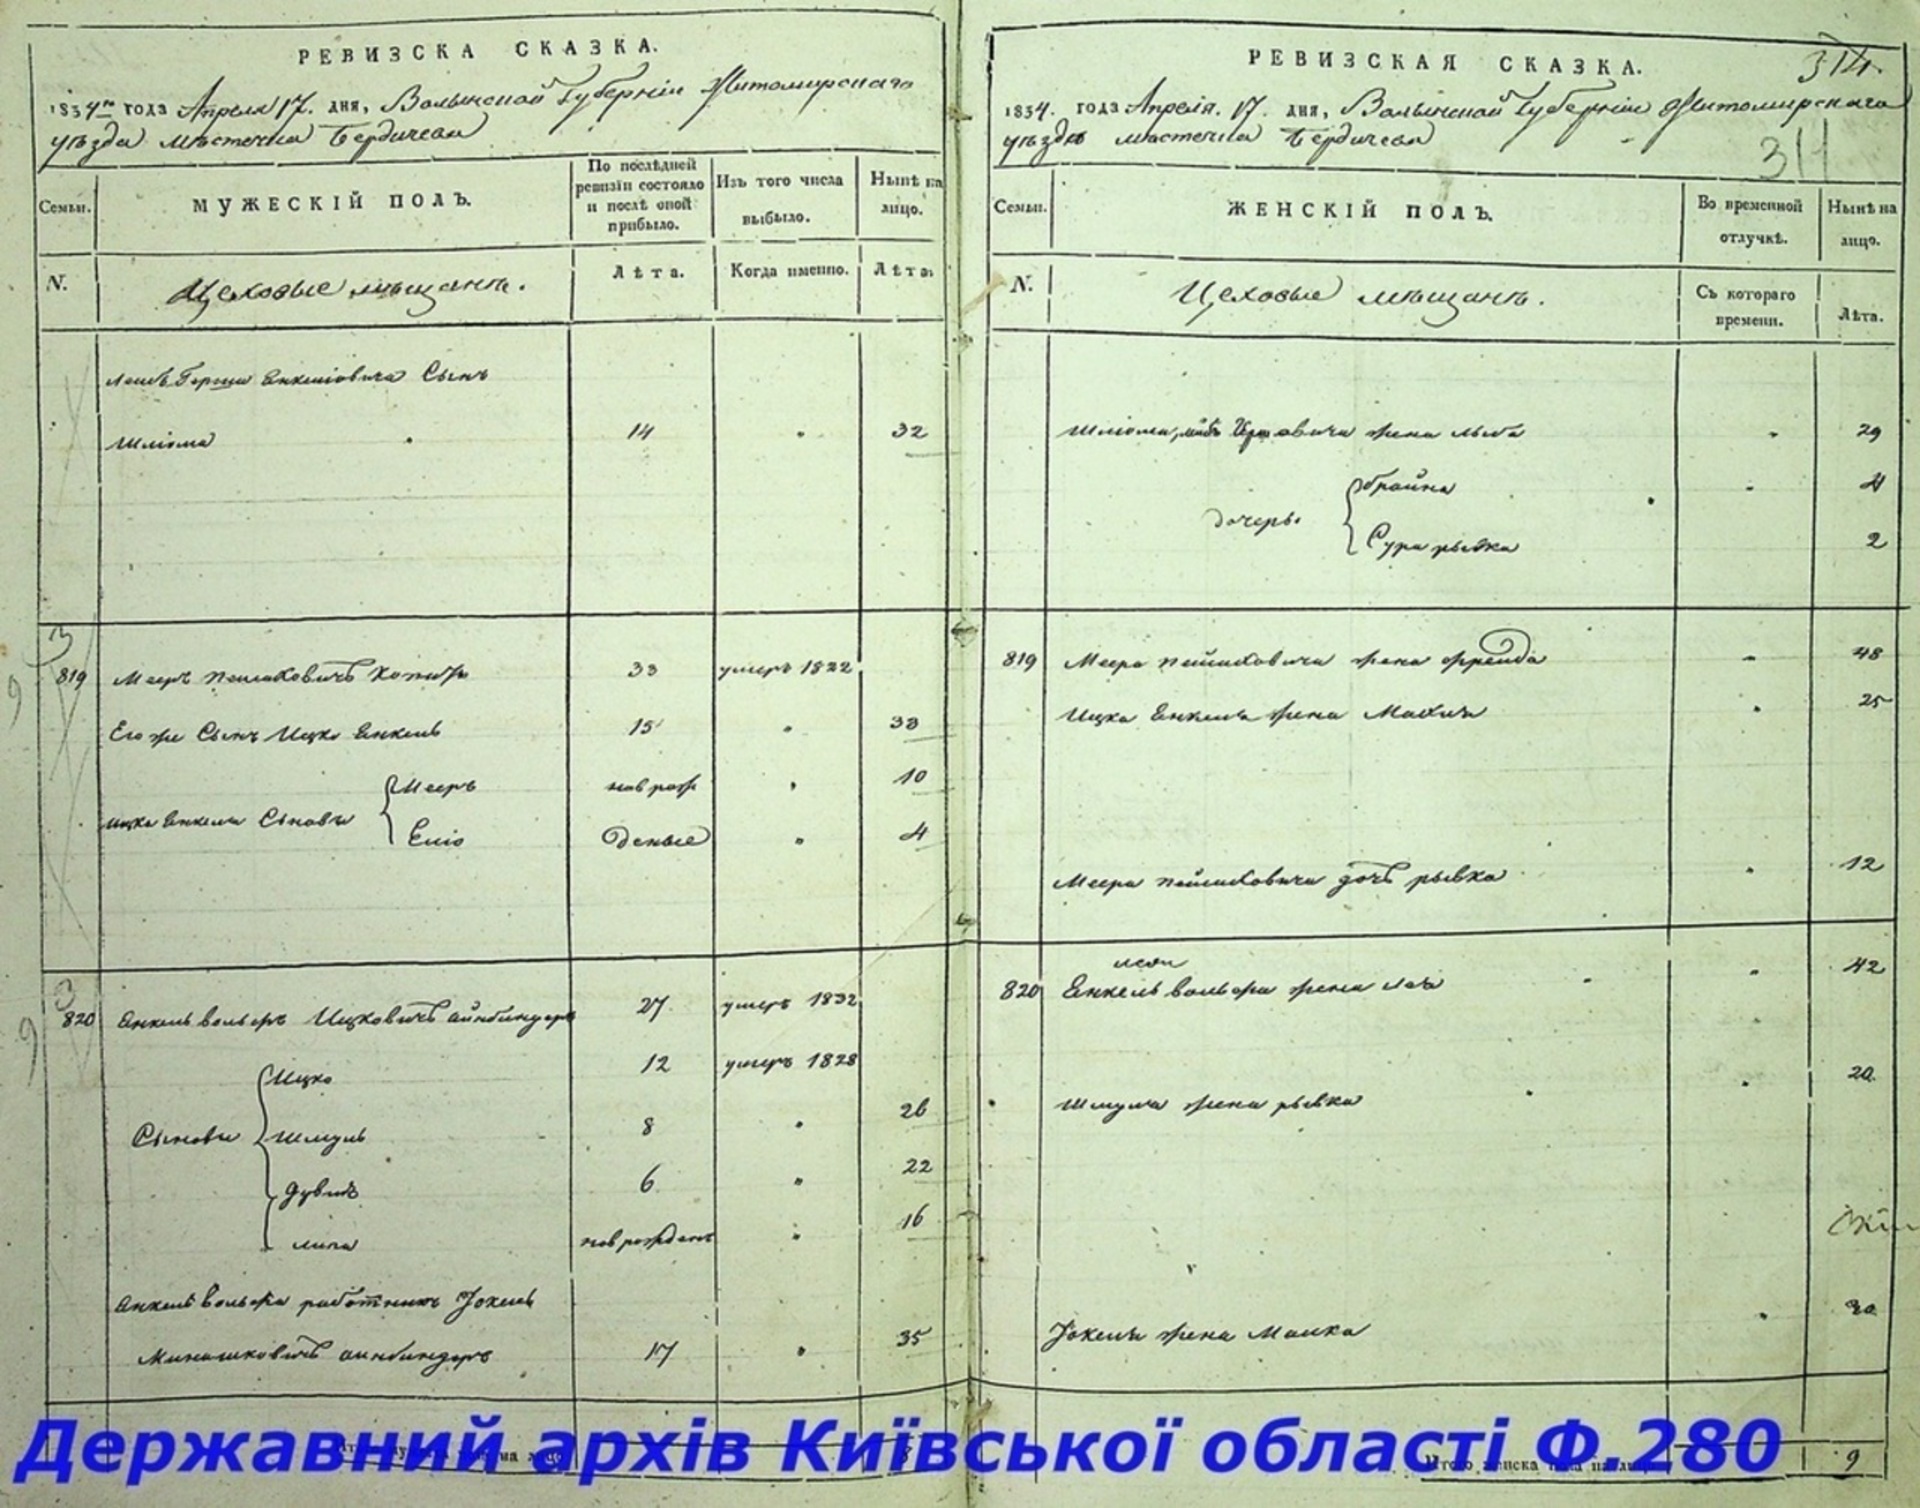 РЕВИЗСКА СКАЗКА.
1834го года Апреля 17. дня, Волынской Губернiи Житомирскаго
уѣзда мѣстечка Бердичева
Семьи.
МУЖЕСКIЙ ПОЛЪ.
По послѣдней ревизiи состояло и послѣ оной прибыло.
Изъ того числа выбыло.
Нынѣ на лицо.
N.
Цеховые мѣщане.
Лѣта.
Когда именно.
Лѣта.
Сынъ
Шлiома 14 " 32
819 Мееръ 33 умеръ 1822
Его же Сынъ Ицко Енкель 15 " 33
Мееръ нов рож " 10
Ицка Енкеля Сыновья
Елiо деные " 4
820 Енкель Вольфъ Ицковичъ Айнбиндеръ 27 умеръ 1832
Ицко 12 умеръ 1828
Сыновья Шмуль 8 " 26
Дувидъ 6 " 22
Липа новрожденъ " 16
Енкель Вольфа работникъ Iокель
Минашковичъ Айнбиндеръ 17 " 35
8
РЕВИЗСКАЯ СКАЗКА.
314.
1834. года Апреля. 17. дня, Волынской Губернiи Житомирскаго
уѣзда мѣстечка Бердичева
314
Семьи.
ЖЕНСКIЙ ПОЛЪ.
Во временной отлучкѣ.
Нынѣ на лицо.
N.
Цеховые мѣщане.
Съ котораго времени.
Лѣта.
Шлiома жена " 29
Брайна " 4
дочери
Сура рывка 2
819 Меера Пейсаховича жена Фрейда " 48
Ицка Енкеля жена " 25
Меера Пейсаховича дочь рывка " 12
820 Енкель Вольфа жена Лея " 42
Шмуля жена рывка " 20
Iокеля жена Малка " 30
Итого женска пола на лицо 9
Державний архів Київської області Ф.280